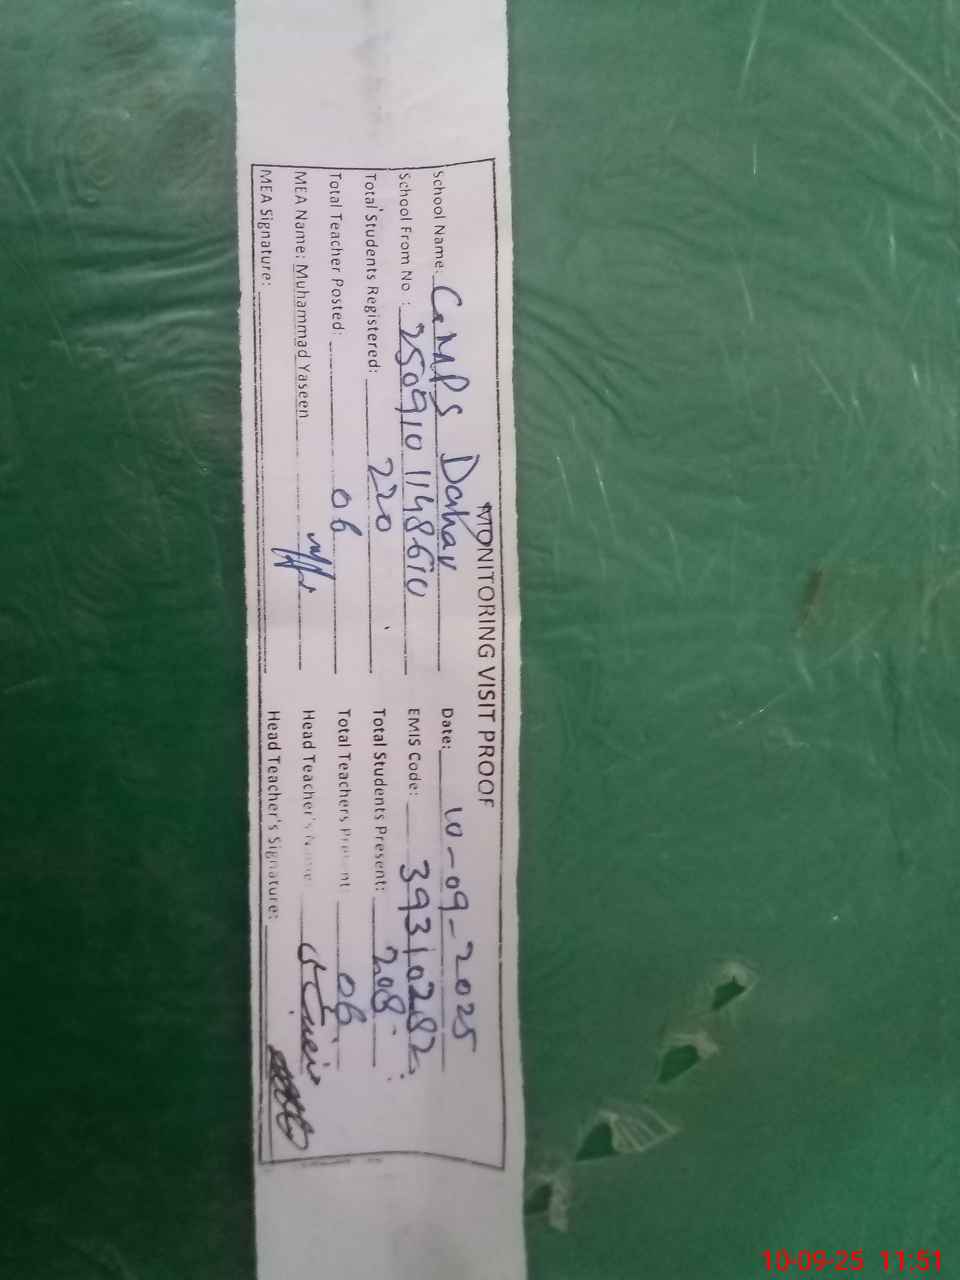 MONITORING VISIT PROOF
School Name: GMPS Dahar Date: 10-09-2025
School From No : 2509101148610 EMIS Code: 39310282
Total Students Registered: 220 Total Students Present: 208
Total Teacher Posted: 06 Total Teachers Present: 06
MEA Name: Muhammad Yaseen Head Teacher's Name:
MEA Signature: Head Teacher's Signature:
10-09-25 11:51